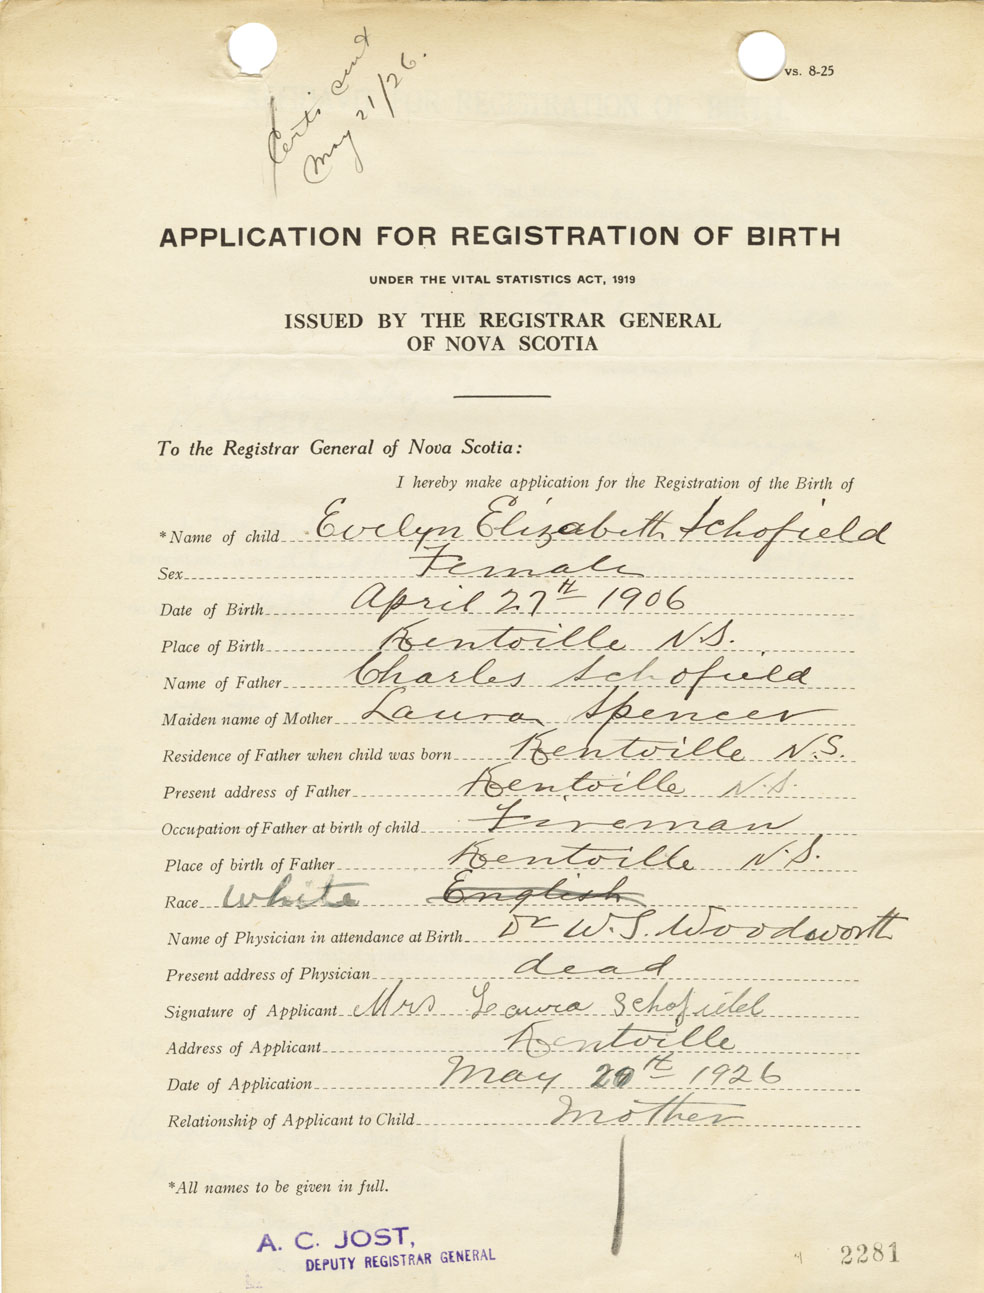 vs. 8-25
Certi sent
May 21/26.
APPLICATION FOR REGISTRATION OF BIRTH
UNDER THE VITAL STATISTICS ACT, 1919
ISSUED BY THE REGISTRAR GENERAL
OF NOVA SCOTIA
To the Registrar General of Nova Scotia:
I hereby make application for the Registration of the Birth of
*Name of child Evelyn Elizabeth Schofield
Sex Female
Date of Birth April 27th 1906
Place of Birth Kentville N.S.
Name of Father Charles Schofield
Maiden name of Mother Laura Spencer
Residence of Father when child was born Kentville N.S.
Present address of Father Kentville N.S.
Occupation of Father at birth of child Fireman
Place of birth of Father Kentville N.S.
Race White English
Name of Physician in attendance at Birth Dr W.S. Woodworth
Present address of Physician dead
Signature of Applicant Mrs Laura Schofield
Address of Applicant Kentville
Date of Application May 20th 1926
Relationship of Applicant to Child Mother
*All names to be given in full.
A. C. JOST,
DEPUTY REGISTRAR GENERAL
2281